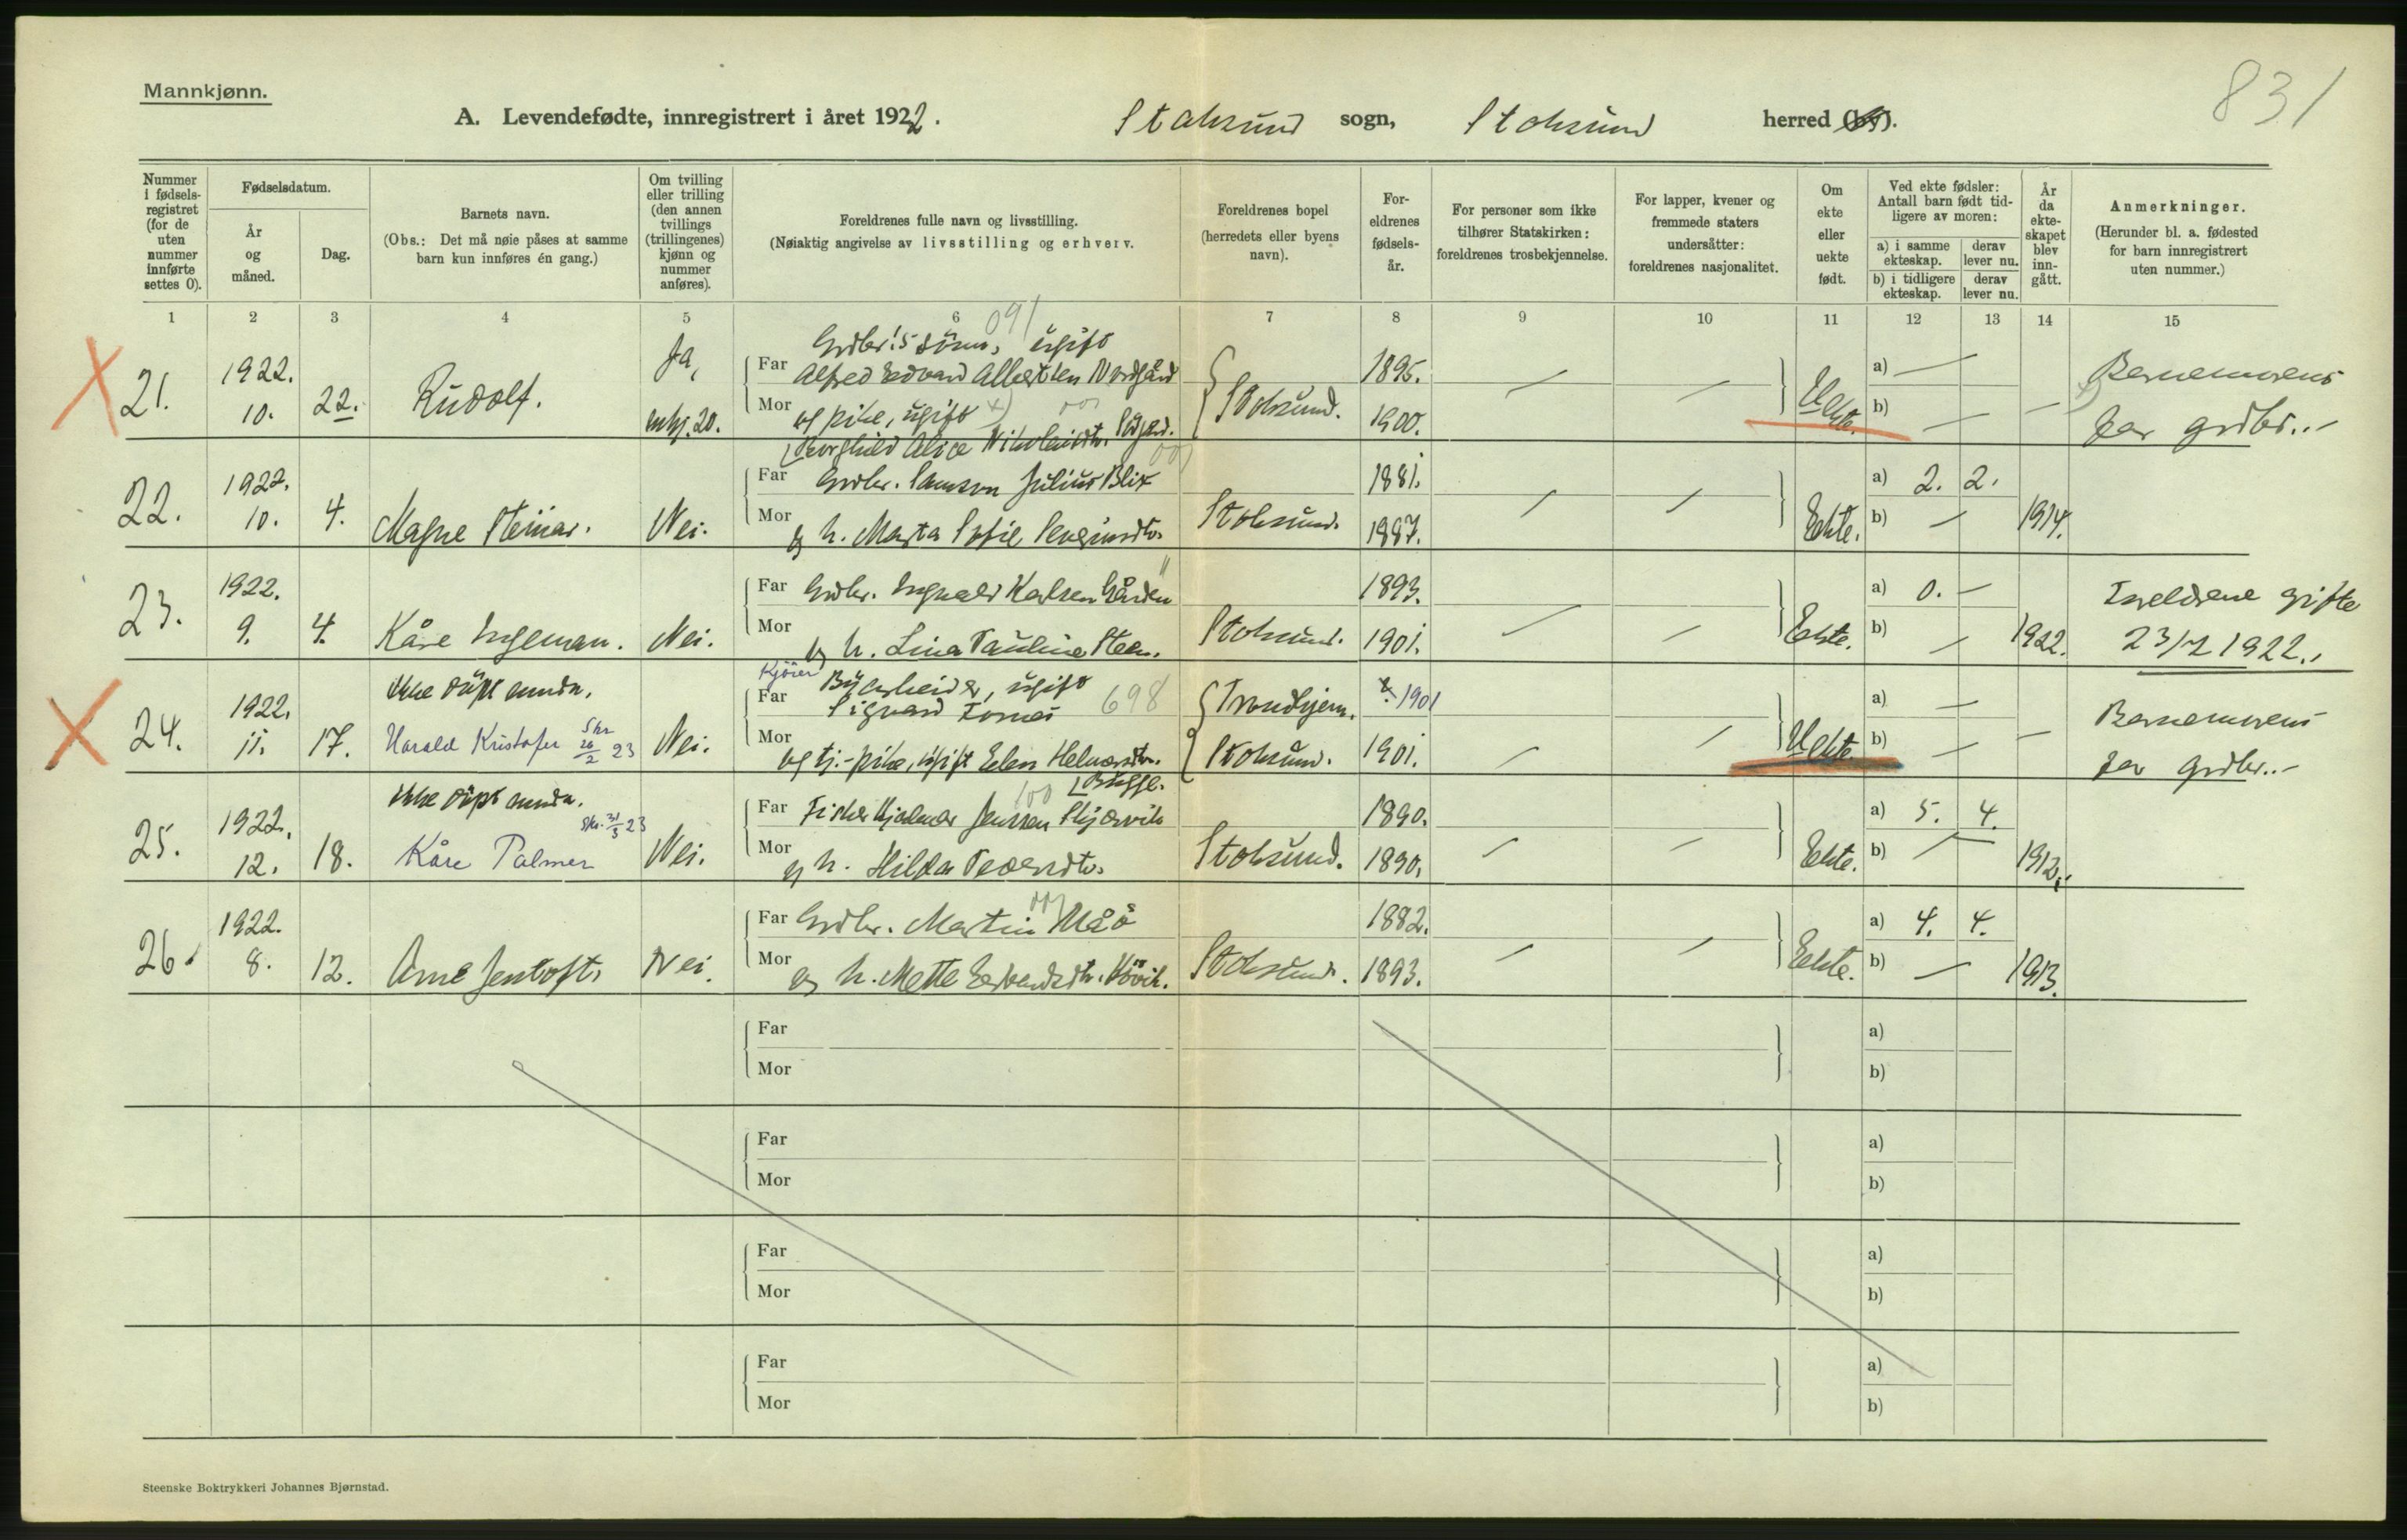 831
Mannkjønn.
A. Levendefødte, innregistrert i året 1922. Stoksund sogn, Stoksund herred (by).
Nummer i fødsels-registret (for de uten nummer innførte settes 0).
Fødselsdatum.
År og måned.
Dag.
Barnets navn.
(Obs.: Det må nøie påses at samme barn kun innføres én gang.)
Om tvilling eller trilling (den annen tvillings (trillingenes) kjønn og nummer anføres).
Foreldrenes fulle navn og livsstilling.
(Nøiaktig angivelse av livsstilling og erhverv.
Foreldrenes bopel (herredets eller byens navn).
For-eldrenes fødsels-år.
For personer som ikke tilhører Statskirken: foreldrenes trosbekjennelse.
For lapper, kvener og fremmede staters undersåtter: foreldrenes nasjonalitet.
Om ekte eller uekte født.
Ved ekte fødsler: Antall barn født tid-ligere av moren:
a) i samme ekteskap.
derav lever nu.
b) i tidligere ekteskap.
derav lever nu.
År da ekte-skapet blev inn-gått.
Anmerkninger.
(Herunder bl. a. fødested for barn innregistrert uten nummer.)
1 2 3 4 5 6 7 8 9 10 11 12 13 14 15
091
21. 1922. 10. 22. Rudolf. Ja, mkj. 20.
Grdbr.'s sønn, ugift
Far Alfred Edvard Albertsen Nordgård 1895.
Mor og pike, ugift x) 1900.
Borghild Alice Nikolaisdtr.
Stoksund. Uekte. a) — b) — —
Barnemorens far grdbr..-
22. 1922. 10. 4. Magne Steinar. Nei.
Far Grdbr. Samson Julius Blix 1881.
Mor og h. Marta Sofie 1887.
Stoksund. Ekte. a) 2. 2. b) — 1914.
23. 1922. 9. 4. Kåre Ingeman. Nei.
Far Grdbr. Ingvald Karlsen Gården 1893.
Mor og h. Lina Pauline Steen. 1901.
Stoksund. Ekte. a) 0. — b) — 1922.
Foreldrene gifte 23/7 1922.
Ikke døpt ennda.
24. 1922. 11. 17. Harald Kristofer 23 Nei.
Kjörer
Byarbeider, ugift
Far Sigvard Fornes 698 Trondhjem. 1901
Mor og tj.-pike, ugift Elen Helmersdtr. Bugge. Stoksund. 1901.
Uekte. a) — b) — —
Barnemorens far grdbr..-
Ikke døpt ennda.
25. 1922. 12. 18. Kåre Palmer 23 Nei.
100
Far Fisker Hjalmar Jenssen Skjærvik 1890.
Mor og h. Hilda 1890.
Stoksund. Ekte. a) 5. 4. b) — 1912.
26. 1922. 8. 12. Arne Jentoft. Nei.
Far Grdbr. Martin 1882.
Mor og h. Mette 1893.
Stoksund. Ekte. a) 4. 4. b) — 1913.
Far a)
Mor b)
Far a)
Mor b)
Far a)
Mor b)
Far a)
Mor b)
Steenske Boktrykkeri Johannes Bjørnstad.